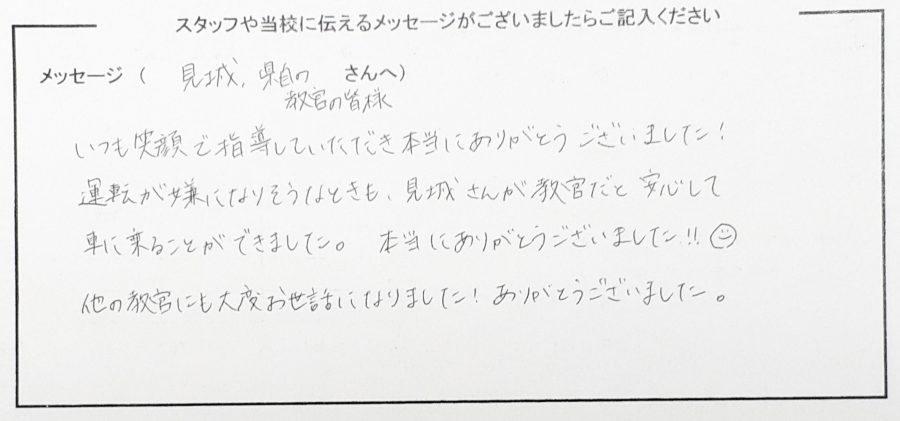 スタッフや当校に伝えるメッセージがございましたらご記入ください
メッセージ ( 見城, 県自の さんへ)
教官の皆様
いつも笑顔で指導していただき本当にありがとうございました!
運転が嫌になりそうなときも、見城さんが教官だと安心して
車に乗ることができました。 本当にありがとうございました!!
他の教官にも大変お世話になりました! ありがとうございました。